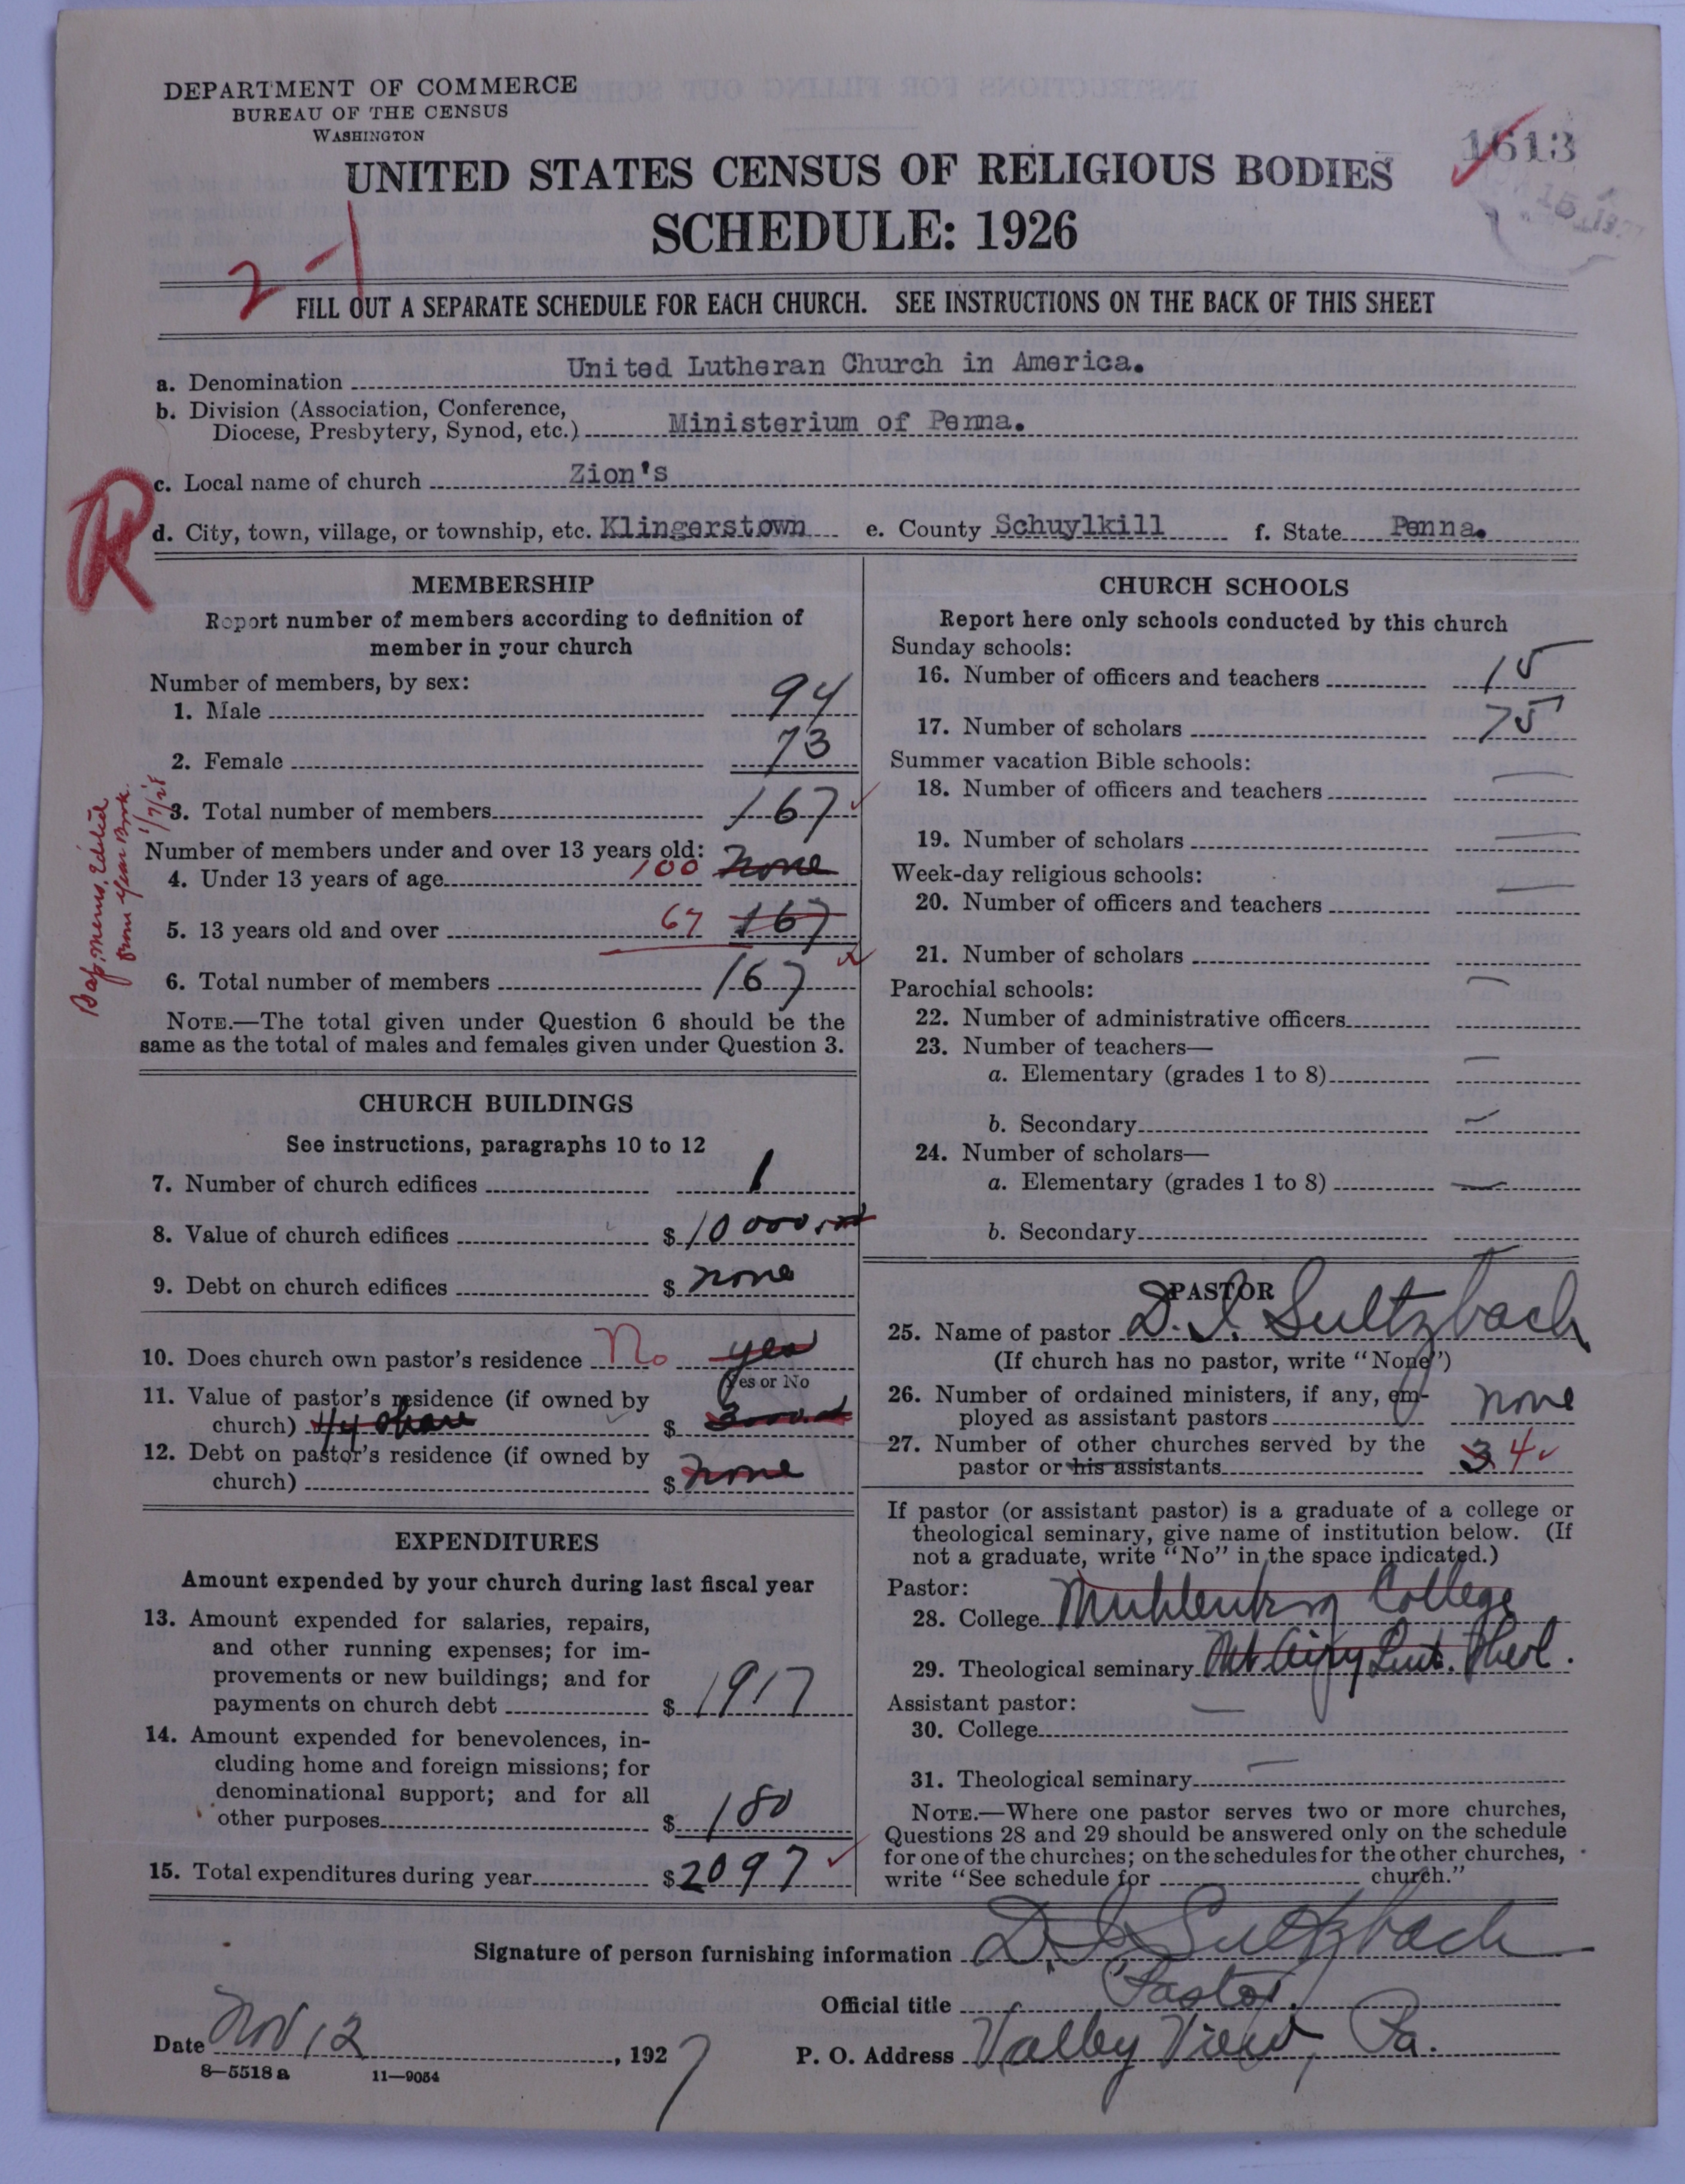 DEPARTMENT OF COMMERCE
BUREAU OF THE CENSUS
WASHINGTON
1613
UNITED STATES CENSUS OF RELIGIOUS BODIES
SCHEDULE: 1926
2-1
FILL OUT A SEPARATE SCHEDULE FOR EACH CHURCH. SEE INSTRUCTIONS ON THE BACK OF THIS SHEET
a. Denomination United Lutheran Church in America.
b. Division (Association, Conference,
Diocese, Presbytery, Synod, etc.) Ministerium of Penna.
c. Local name of church Zion's
R
d. City, town, village, or township, etc. Klingerstown e. County Schuylkill f. State Penna.
MEMBERSHIP
Report number of members according to definition of
member in your church
Number of members, by sex:
1. Male 94
2. Female 73
3. Total number of members 167
Number of members under and over 13 years old:
4. Under 13 years of age 100 none
5. 13 years old and over 67 167
6. Total number of members 167
NOTE.—The total given under Question 6 should be the
same as the total of males and females given under Question 3.
Bap. mems. Edited
from Year Book.
1/7/28
CHURCH BUILDINGS
See instructions, paragraphs 10 to 12
7. Number of church edifices 1
8. Value of church edifices $ 10 000
9. Debt on church edifices $ none
10. Does church own pastor's residence No yes
Yes or No
11. Value of pastor's residence (if owned by
church) share $
12. Debt on pastor's residence (if owned by
church) $ none
EXPENDITURES
Amount expended by your church during last fiscal year
13. Amount expended for salaries, repairs,
and other running expenses; for im-
provements or new buildings; and for
payments on church debt $ 1917
14. Amount expended for benevolences, in-
cluding home and foreign missions; for
denominational support; and for all
other purposes $ 180
15. Total expenditures during year $ 2097
CHURCH SCHOOLS
Report here only schools conducted by this church
Sunday schools:
16. Number of officers and teachers 15
17. Number of scholars 75
Summer vacation Bible schools:
18. Number of officers and teachers —
19. Number of scholars —
Week-day religious schools:
20. Number of officers and teachers —
21. Number of scholars
Parochial schools:
22. Number of administrative officers —
23. Number of teachers—
a. Elementary (grades 1 to 8) —
b. Secondary —
24. Number of scholars—
a. Elementary (grades 1 to 8) —
b. Secondary
PASTOR
25. Name of pastor D. I. Sultzbach
(If church has no pastor, write "None")
26. Number of ordained ministers, if any, em-
ployed as assistant pastors none
27. Number of other churches served by the
pastor or his assistants 3 4
If pastor (or assistant pastor) is a graduate of a college or
theological seminary, give name of institution below. (If
not a graduate, write "No" in the space indicated.)
Pastor:
28. College Muhlenburg College
29. Theological seminary Mt Airy Lut. Theol.
Assistant pastor: —
30. College
31. Theological seminary —
NOTE.—Where one pastor serves two or more churches,
Questions 28 and 29 should be answered only on the schedule
for one of the churches; on the schedules for the other churches,
write "See schedule for church."
Signature of person furnishing information D I Sultzbach
Official title Pastor.
Date Nov 12, 1927 P. O. Address Valley View, Pa.
8—5518 a 11—9054